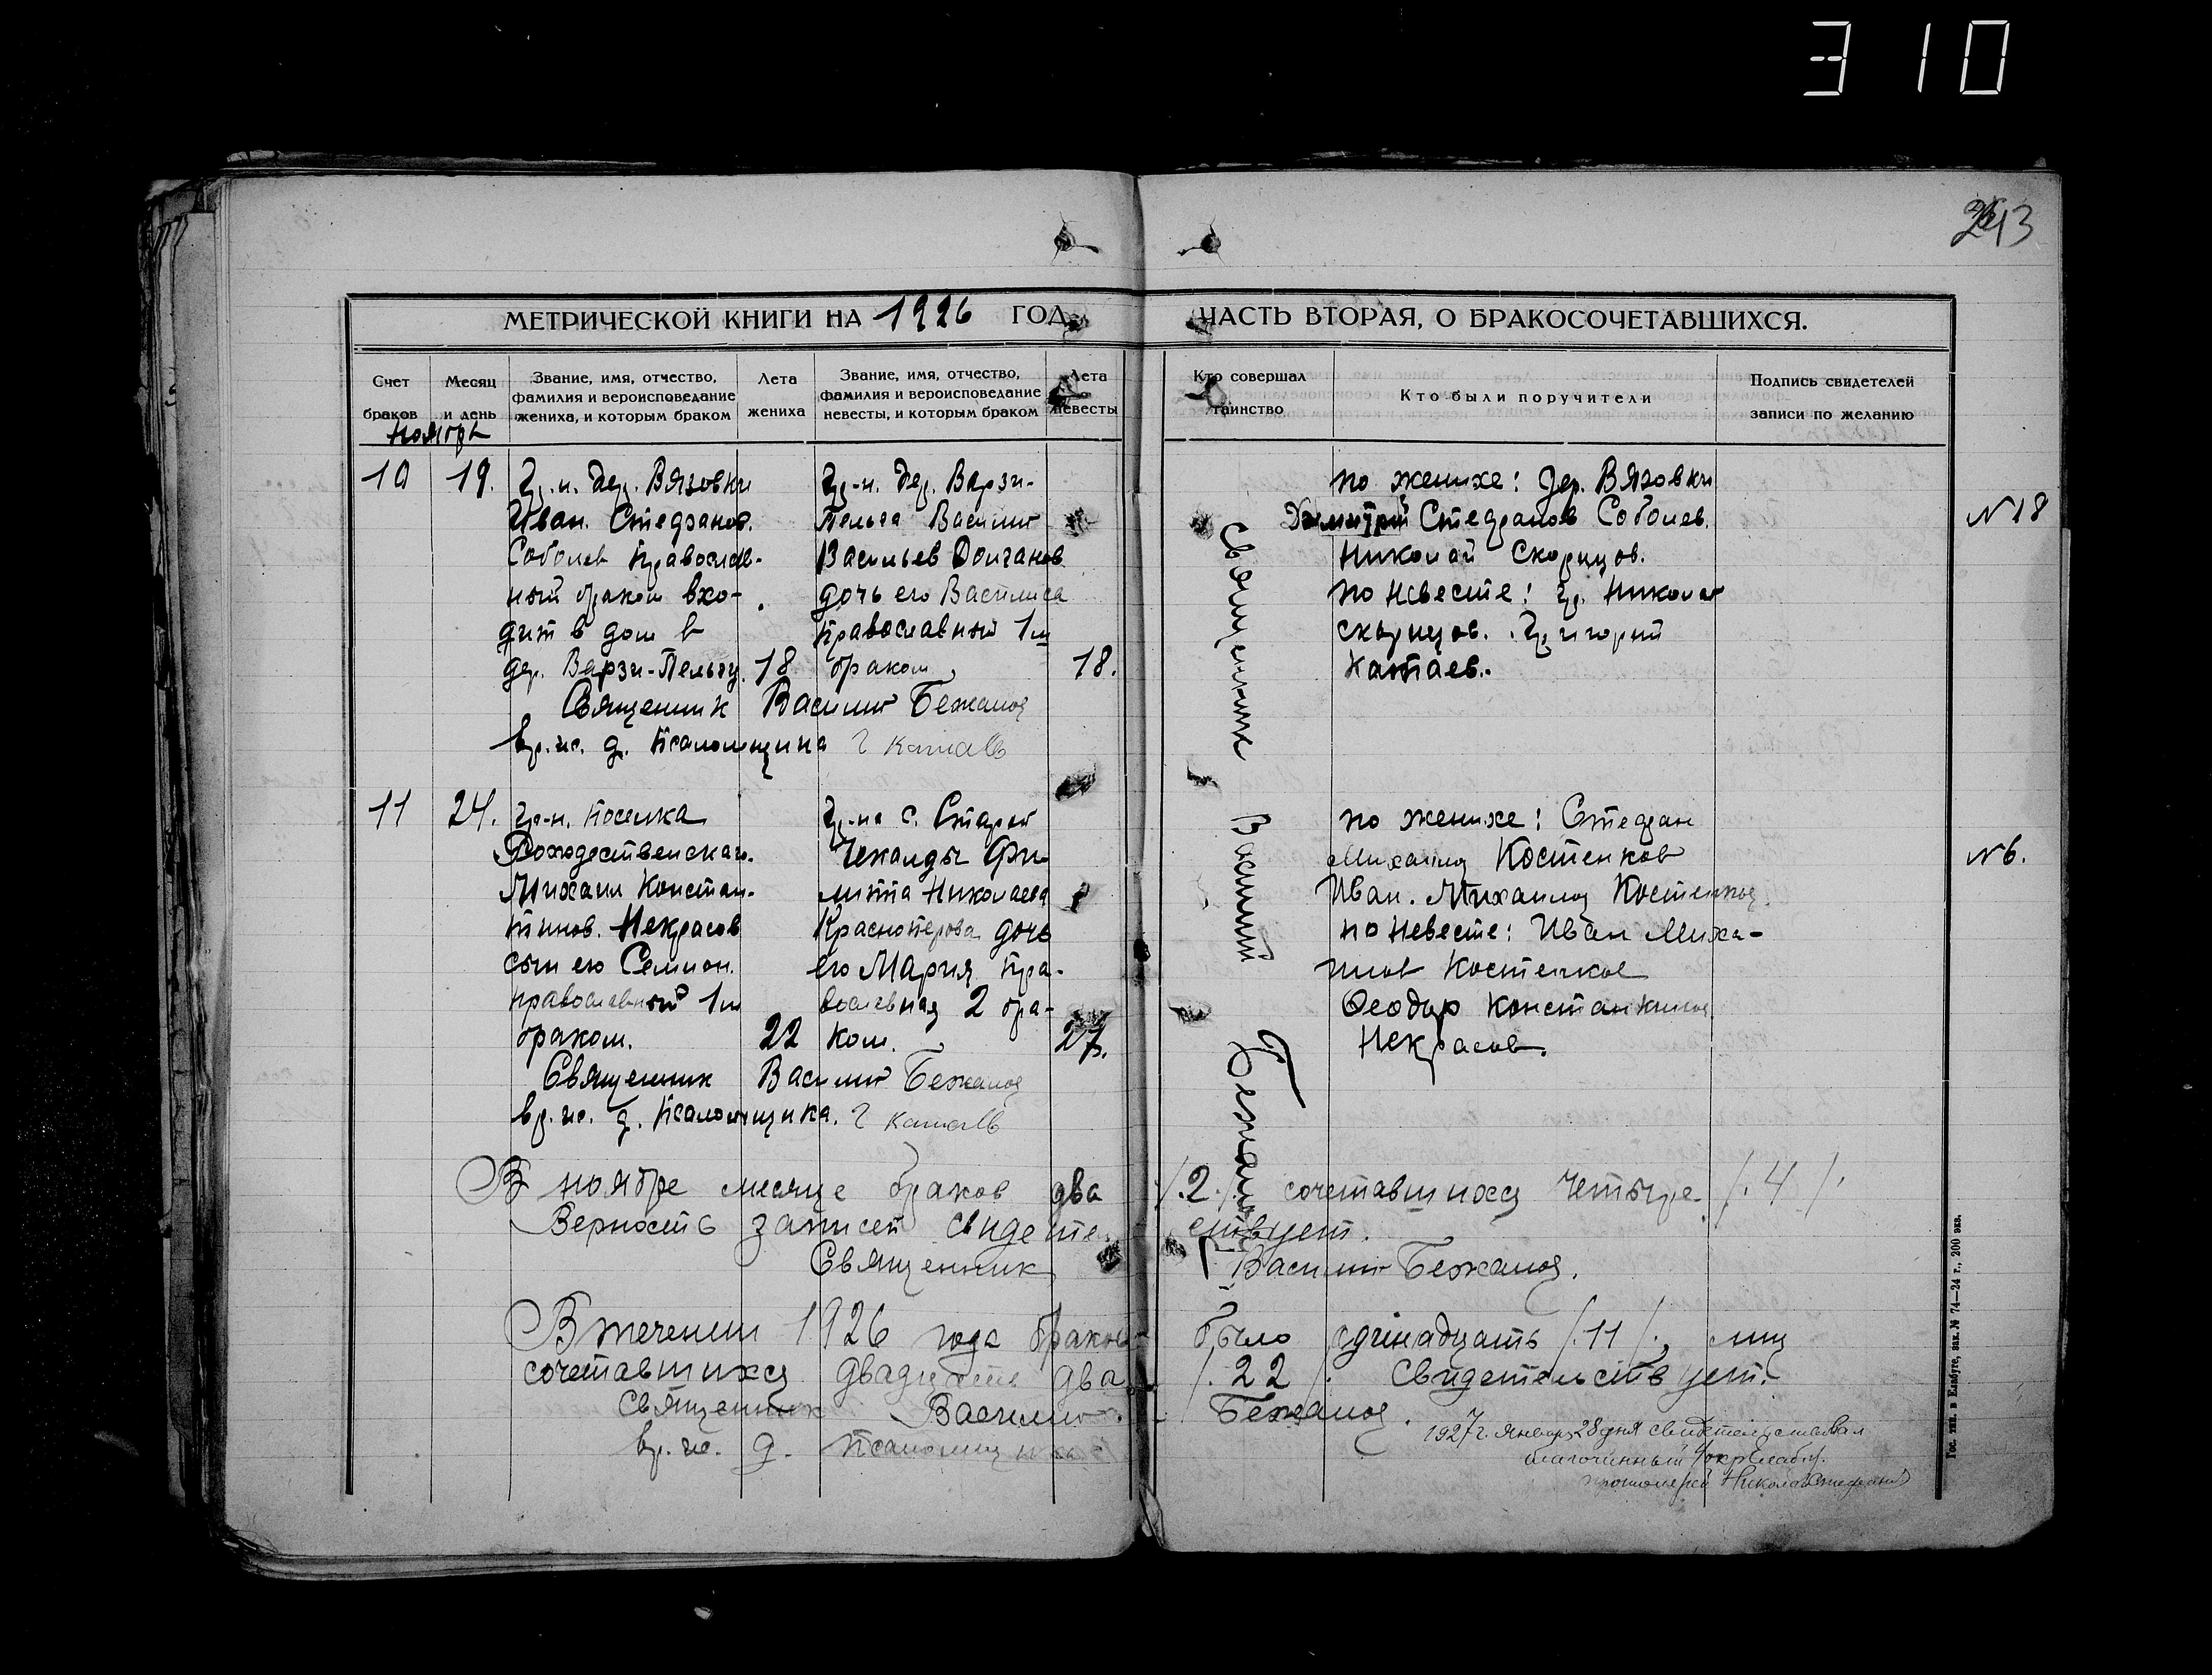 310
243
МЕТРИЧЕСКОЙ КНИГИ НА 1926 ГОД,
ЧАСТЬ ВТОРАЯ, О БРАКОСОЧЕТАВШИХСЯ.
Счет браков
Месяц и день
Звание, имя, отчество, фамилия и вероисповедание жениха, и которым браком
Лета жениха
Звание, имя, отчество, фамилия и вероисповедание невесты, и которым браком
Лета невесты
Кто совершал таинство
Кто были поручители
Подпись свидетелей записи по желанию
Ноябрь
10
19.
Гр.н. дер. Вязовки
Иван. Стефанов.
Соболев православ-
ный браком вхо-
дит в дом в
дер. Варзи-Пельгу.
18
Гр-н. дер. Варзи-
Пельга Василий
Васильев Долганов
дочь его Василиса
православный 1м
браком
18.
Священник Василий Бежанов
вр. ис. д. псаломщика Г Катаев
по женихе: дер. Вязовки
Димитрий Стефанов Соболев.
Николай Скорцов.
по невесте: гр. Николай
Скорцов. Григорий
Катаев.
N 18
11
24.
Гр-н. поселка
Рождественскаго.
Михаил Констан-
тинов. Некрасов
сын его Семион.
православный 1м
браком.
22
Гр-на с. Старой
Чекалды Фи-
липпа Николаева
Красноперова дочь
его Мария пра-
вославная 2 бра-
ком.
27.
Священник Василий Бежанов
вр. ис. д. псаломщика. Г Катаев
по женихе: Стефан
Михаилов Костенков
Иван. Михаилов Костенков
по невесте: Иван Миха-
илов Костенков
Феодор Константинов
Некрасов.
N 6.
Священник Василий Бежанов
В ноябре месяце браков два /.2./ сочетавшихся четыре /.4./
Верность записей свидетельствует.
Священник Василий Бежанов.
В течении 1926 года браков было одинадцать /.11./, лиц
сочетавшихся двадцать два /.22./. Свидетельствует.
Священник Василий Бежанов.
вр. ис. д. псаломщика
1927 г. января 28 дня свидетельствовал
благочинный окр Елабуг.
протоиерей Николай
Гос. тип. в Елабуге, зак. № 74—24 г., 200 экз.